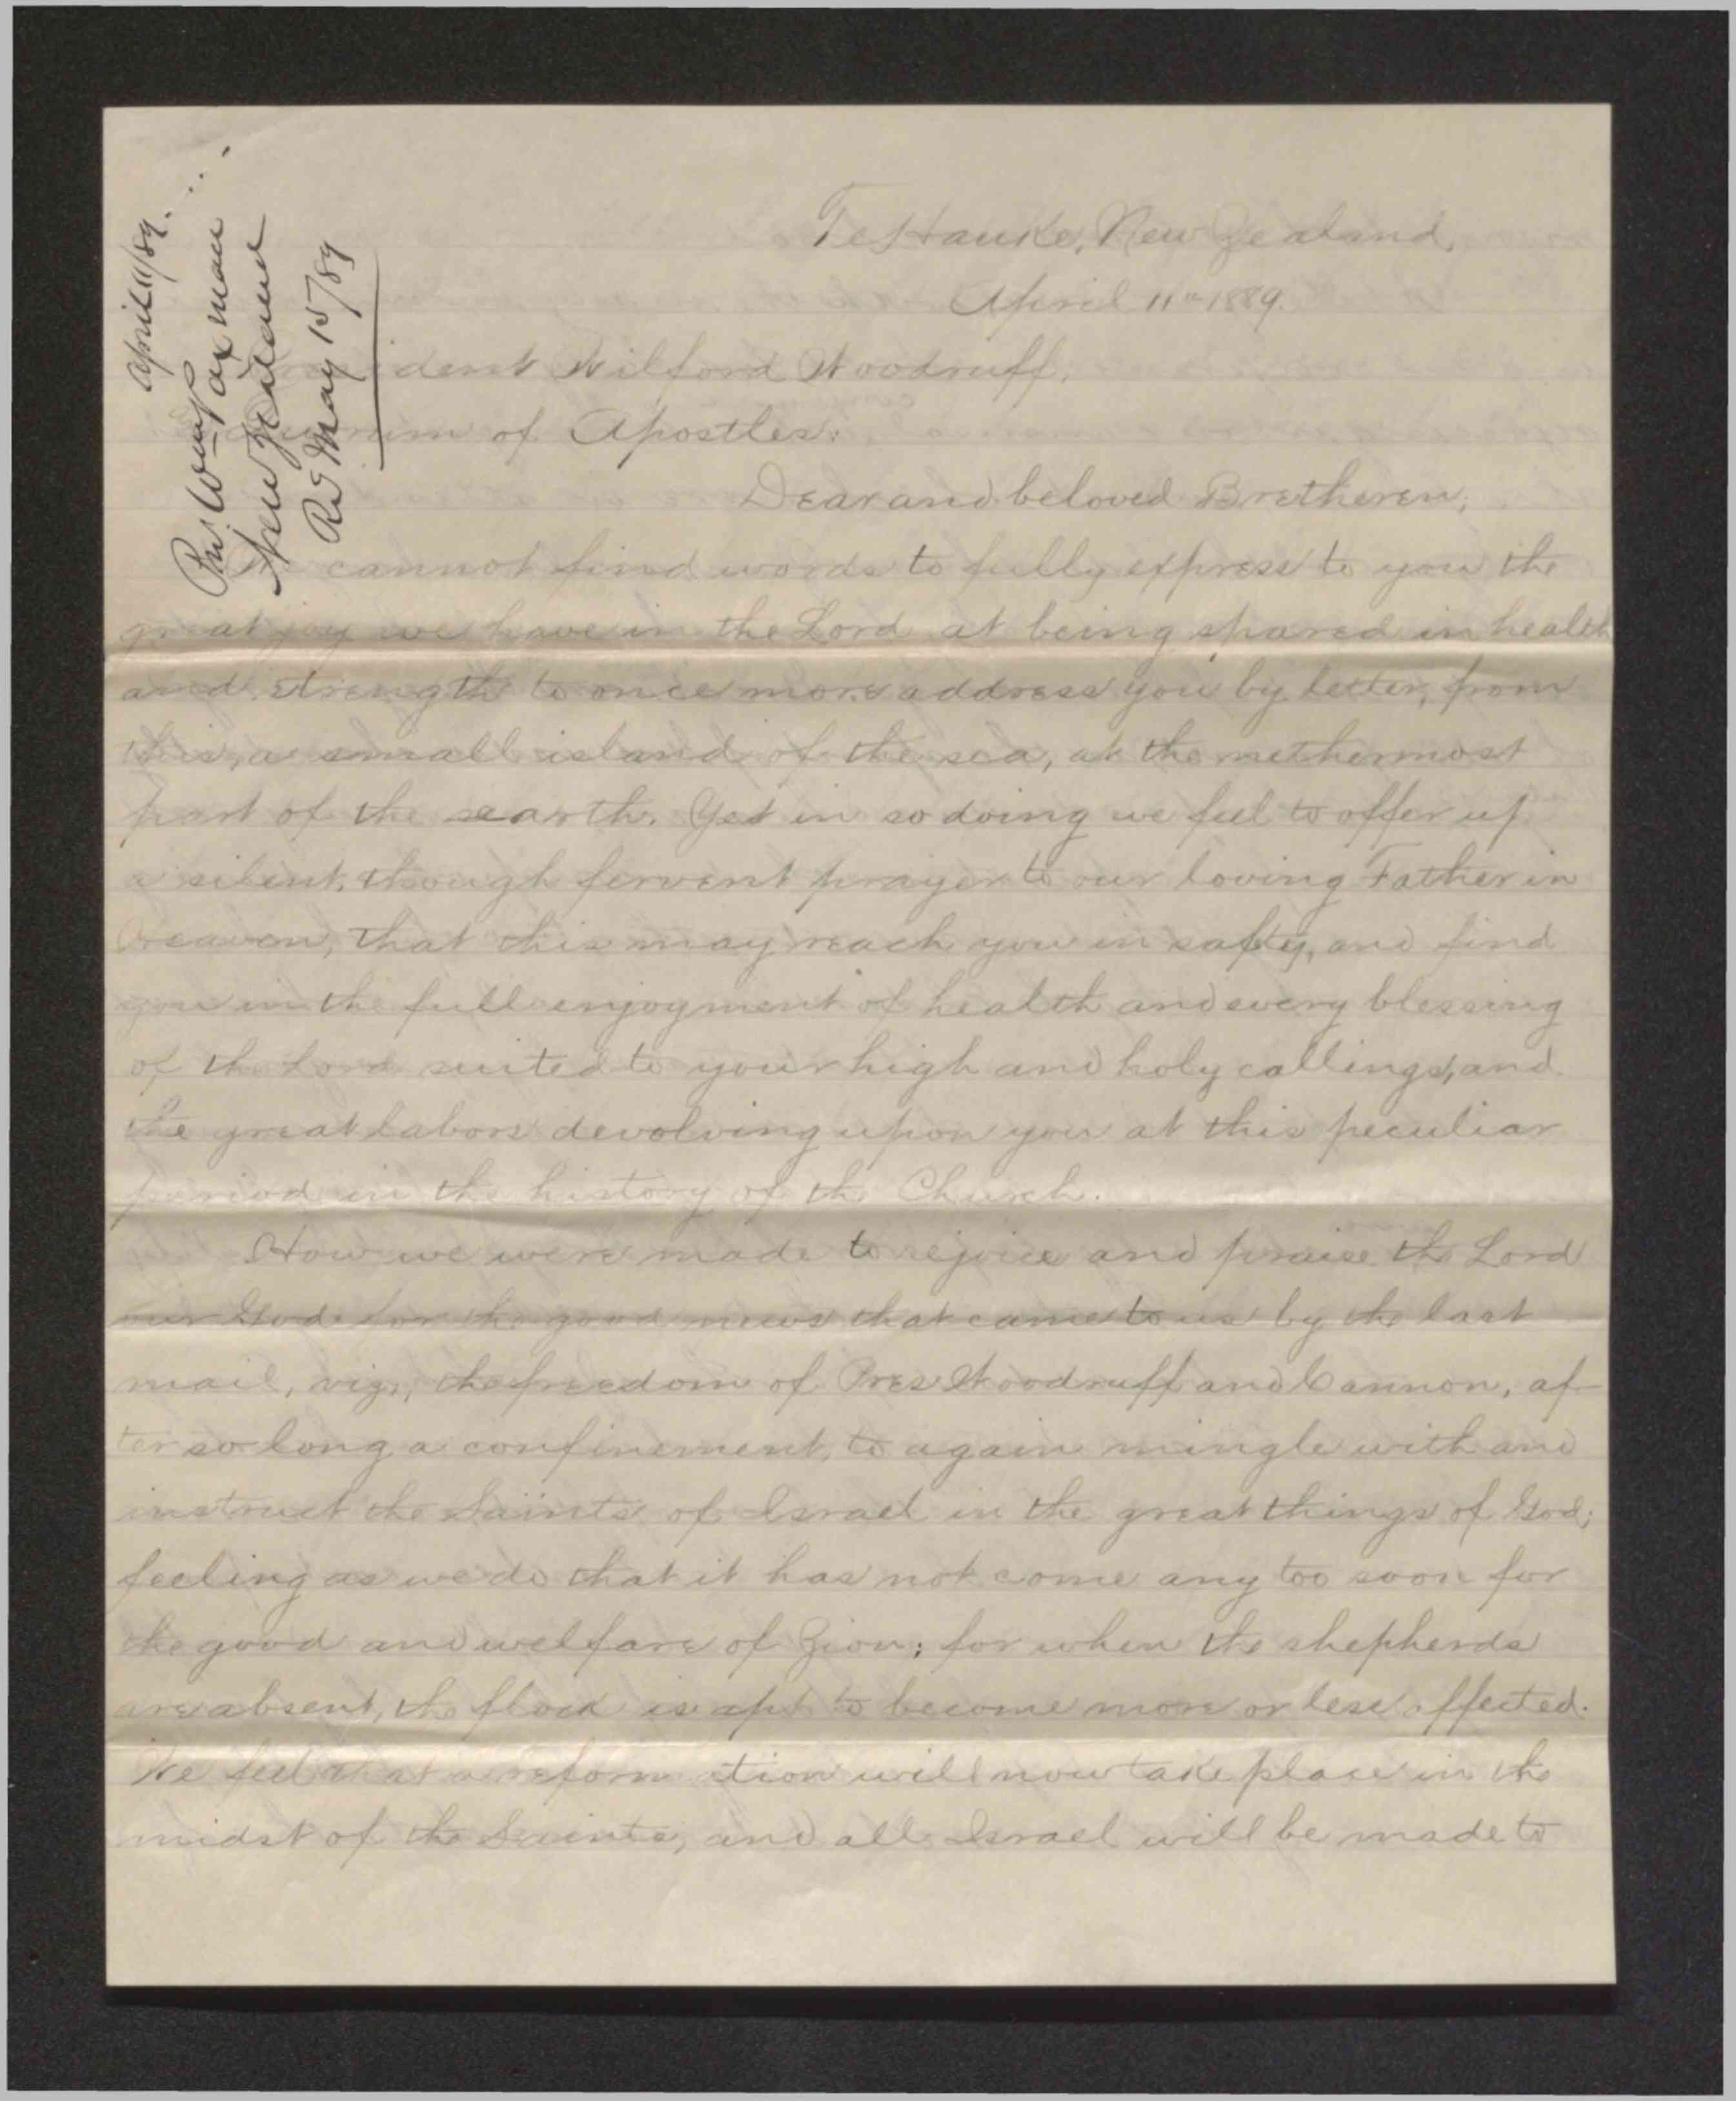 April 11/89.
Wm Paxman
New Zealand
Rd May 15/89
Te Hauke, New Zealand,
April 11th 1889.
ident Wilford Woodruff,
of Apostles:
Dear and beloved Bretheren;
cannot find words to fully express to you the
great joy we have in the Lord at being spared in health
and strength to once more address you by letter, from
this, a small island of the sea, at the nethermost
part of the earth. Yet in so doing we feel to offer up
a silent, though fervent prayer to our loving Father in
Heaven, that this may reach you in safty, and find
you in the full enjoyment of health and every blessing
of the Lord suited to your high and holy callings, and
the great labors devolving upon you at this peculiar
period in the history of the Church.
How we were made to rejoice and praise the Lord
our God for the good news that came to us by the last
mail, viz, the freedom of Pres Woodruff and Cannon, af-
ter so long a confinement, to again mingle with and
instruct the Saints of Israel in the great things of God;
feeling as we do that it has not come any too soon for
the good and welfare of Zion; for when the shepherds
are absent, the flock is apt to become more or less affected.
We feel that a reformation will now take place in the
midst of the Saints, and all Israel will be made to